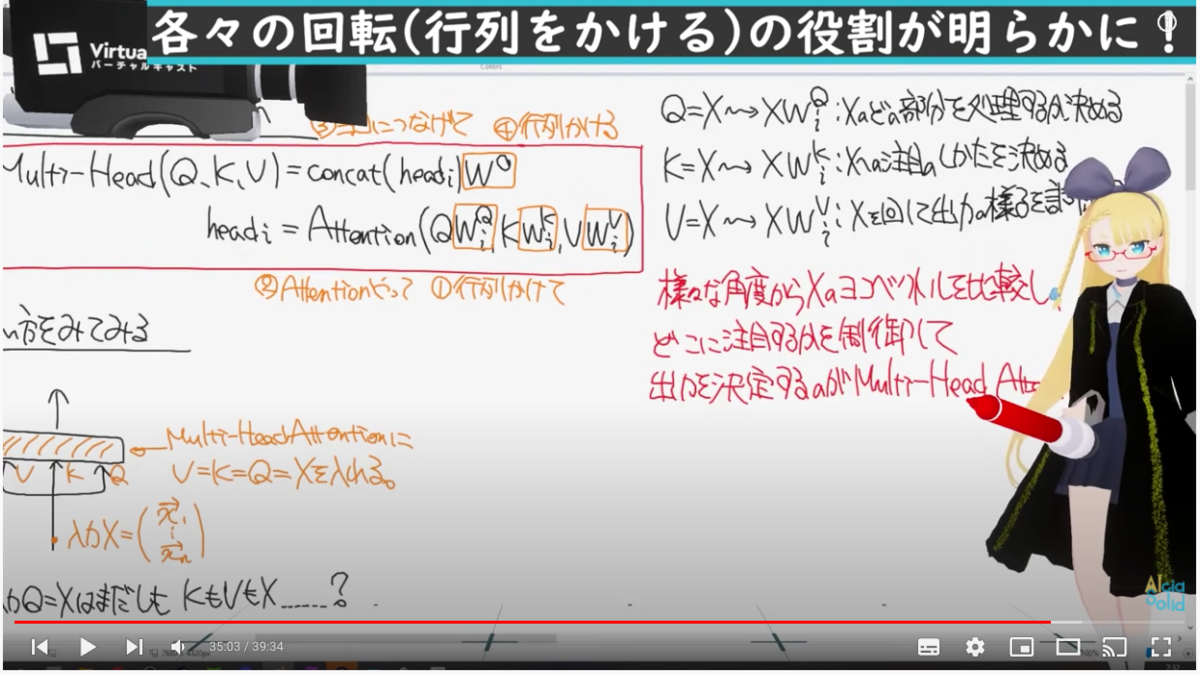 各々の回転(行列をかける)の役割が明らかに!
Virtua
バーチャルキャスト
Colors
につなげて ④行列かける
Multi-Head(Q、K、V)=concat(headi)W^O
headi = Attention(QWiQ, KWiK, VWiV)
②Attentionやって ①行列かけて
い方をみてみる
Multi-Head Attentionに
V=K=Q=Xを入れる。
V K Q
入力X=(x1
xn)
Q=Xはまだしも KもVもX……?
Q=X〜→XWiQ:Xのどの部分を処理するか決める
K=X〜→XWiK:Xの注目のしかたを決める
V=X〜→XWiV:Xを回して出力の様子を
様々な角度からXのヨコベクトルを比較し、
どこに注目するかを制御して
出力を決定するのがMulti-Head Atte
Alcia
Solid
35:03 / 39:34